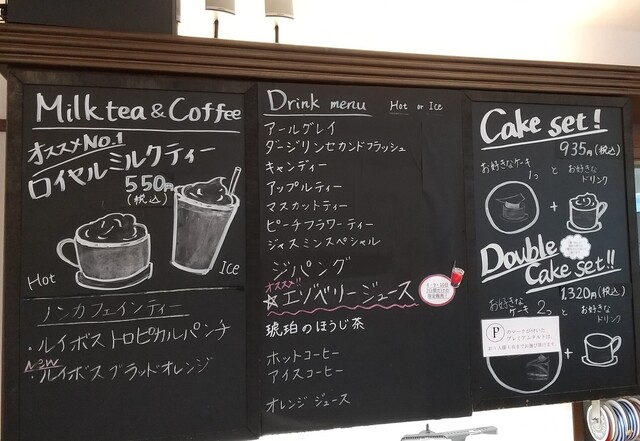 Milktea & Coffee
オススメNo.1
ロイヤルミルクティー
550円
(税込)
Hot
Ice
ノンカフェインティー
・ルイボストロピカルパンチ
New
・ルイボスブラッドオレンジ
Drink menu Hot or Ice
アールグレイ
ダージリンセカンドフラッシュ
キャンディー
アップルティー
マスカットティー
ピーチフラワーティー
ジャスミンスペシャル
ジパング
オススメ!!
☆エゾベリージュース
琥珀のほうじ茶
ホットコーヒー
アイスコーヒー
オレンジジュース
Cake set!
935円(税込)
お好きなケーキ
1つ
と
お好きな
ドリンク
+
Double
Cake set!!
1,320円(税込)
お好きな
ケーキ 2つ
と
お好きな
ドリンク
P のマークが付いた
プレミアムタルトは、
+